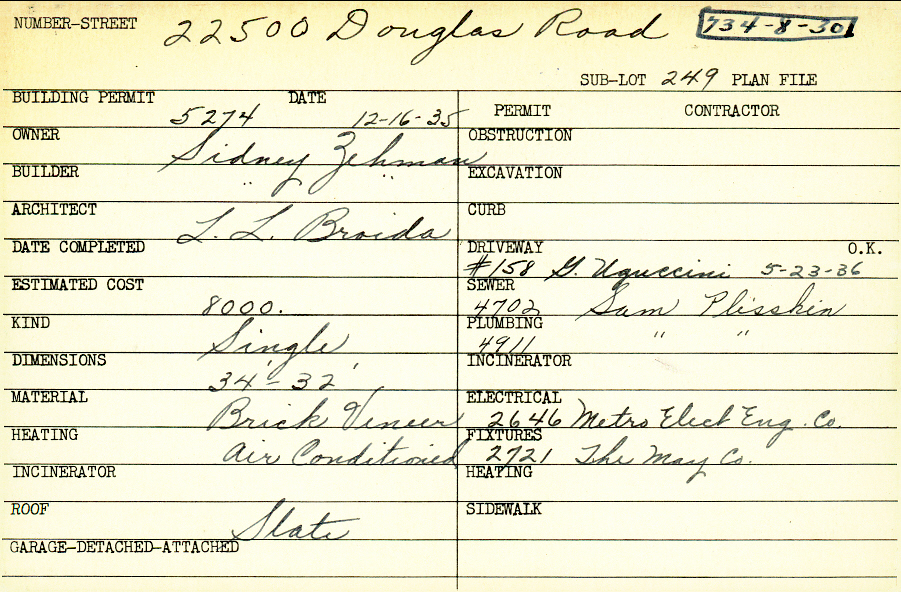 NUMBER-STREET 22500 Douglas Road 734-8-30
SUB-LOT 249 PLAN FILE
BUILDING PERMIT 5274 DATE 12-16-35
OWNER Sidney Zehman
BUILDER " "
ARCHITECT L. L. Broida
DATE COMPLETED
ESTIMATED COST 8000.
KIND Single
DIMENSIONS 34' - 32'
MATERIAL Brick Veneer
HEATING Air Conditioned
INCINERATOR
ROOF Slate
GARAGE-DETACHED-ATTACHED
PERMIT CONTRACTOR
OBSTRUCTION
EXCAVATION
CURB
DRIVEWAY O.K.
#158 G. Uguccini 5-23-36
SEWER
4702 Sam Plisskin
PLUMBING
4911 " "
INCINERATOR
ELECTRICAL
2646 Metro Elect Eng. Co.
FIXTURES
2721 The May Co.
HEATING
SIDEWALK